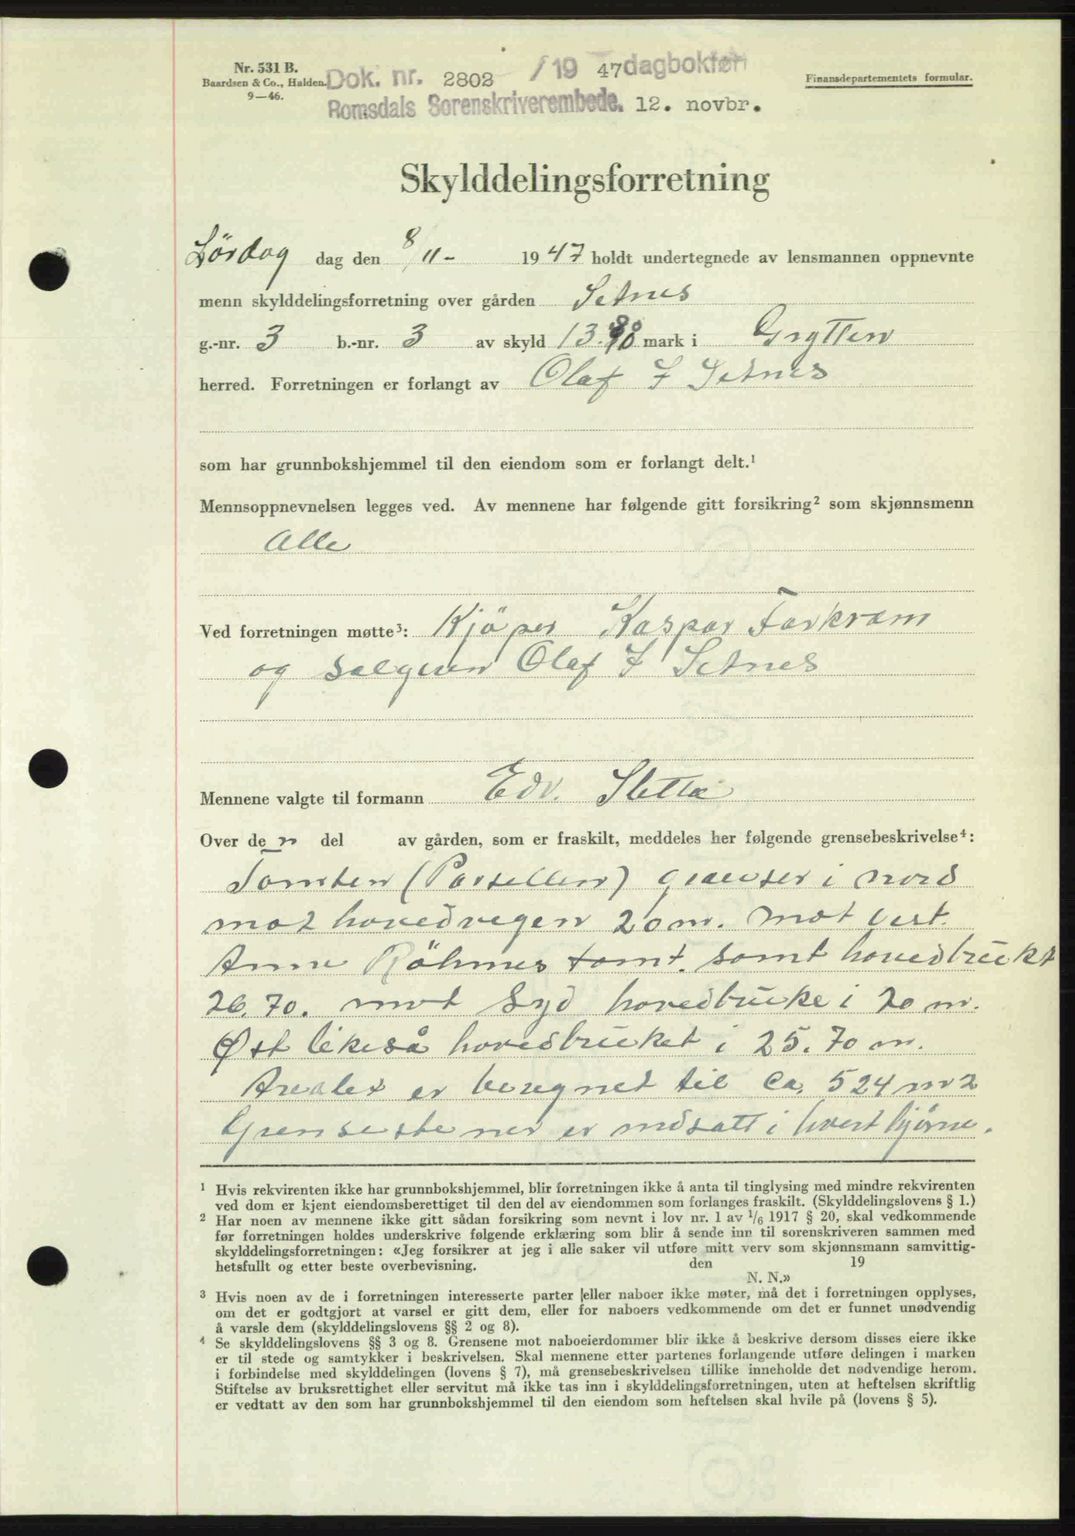 Nr. 531 B.
Baardsen & Co., Halden.
9—46.
Dok. nr. 2802 /19 47 dagbokført
Romsdals Sorenskriverembede. 12. novbr.
Finansdepartementets formular.
Skylddelingsforretning
Lördag dag den 8/11- 1947 holdt undertegnede av lensmannen oppnevnte
menn skylddelingsforretning over gården Setnes
g.-nr. 3 b.-nr. 3 av skyld 13. mark i Grytten
herred. Forretningen er forlangt av Olaf I Setnes
som har grunnbokshjemmel til den eiendom som er forlangt delt.¹
Mennsoppnevnelsen legges ved. Av mennene har følgende gitt forsikring² som skjønnsmenn
Alle
Ved forretningen møtte³: Kjöper Kaspar Farkvam
og selgeren Olaf I Setnes
Mennene valgte til formann Edv. Sletta
Over den del av gården, som er fraskilt, meddeles her følgende grensebeskrivelse⁴:
Tomten (Parsellen) grenser i nord
mot hovedvegen 20 m. mot vest.
Anne Röhmes tomt. samt hovedbruket
26.70. mot Syd hovedbruke i 20 m.
Øst likeså hovedbruket i 25.70 m.
Arealet er beregnet til ca. 524 m2
Grensestener er nedsatt i hvert hjørne.
¹ Hvis rekvirenten ikke har grunnbokshjemmel, blir forretningen ikke å anta til tinglysing med mindre rekvirenten
ved dom er kjent eiendomsberettiget til den del av eiendommen som forlanges fraskilt. (Skylddelingslovens § 1.)
² Har noen av mennene ikke gitt sådan forsikring som nevnt i lov nr. 1 av 1/6 1917 § 20, skal vedkommende
før forretningen holdes underskrive følgende erklæring som blir å sende inn til sorenskriveren sammen med
skylddelingsforretningen: «Jeg forsikrer at jeg i alle saker vil utføre mitt verv som skjønnsmann samvittig-
hetsfullt og etter beste overbevisning. den 19
N. N.»
³ Hvis noen av de i forretningen interesserte parter eller naboer ikke møter, må det i forretningen opplyses,
om det er godtgjort at varsel er gitt dem, eller for naboers vedkommende om det er funnet unødvendig
å varsle dem (skylddelingslovens §§ 2 og 8).
⁴ Se skylddelingslovens §§ 3 og 8. Grensene mot naboeierdommer blir ikke å beskrive dersom disses eiere ikke
er til stede og samtykker i beskrivelsen. Skal mennene etter partenes forlangende utføre delingen i marken
i forbindelse med skylddelingen (lovens § 7), må grensebeskrivelsen tillike inneholde det nødvendige herom.
Stiftelse av bruksrettighet eller servitut må ikke tas inn i skylddelingsforretningen, uten at heftelsen skriftlig
er vedtatt av den som har grunnbokshjemmel til den eiendom som heftelsen skal hvile på (lovens § 5).